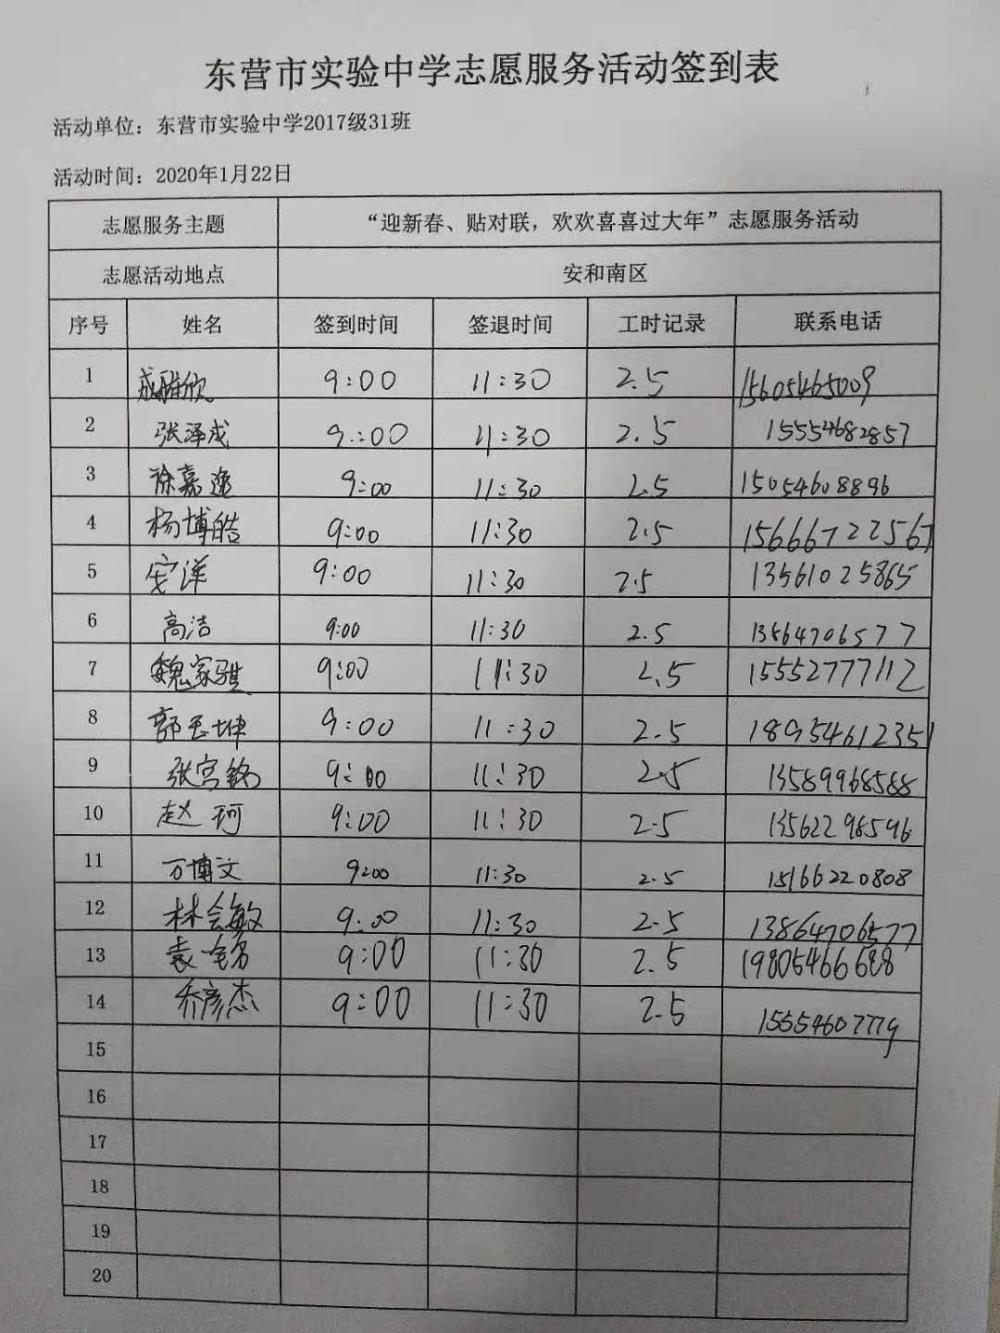 东营市实验中学志愿服务活动签到表
活动单位：东营市实验中学2017级31班
活动时间：2020年1月22日
志愿服务主题 “迎新春、贴对联，欢欢喜喜过大年”志愿服务活动
志愿活动地点 安和南区
序号 姓名 签到时间 签退时间 工时记录 联系电话
1 成雅欣 9:00 11:30 2.5 15605465009
2 张泽成 9:00 11:30 2.5 15554682857
3 徐嘉逸 9:00 11:30 2.5 15054608896
4 杨博皓 9:00 11:30 2.5 15666722567
5 安洋 9:00 11:30 2.5 13561025865
6 高洁 9:00 11:30 2.5 13564706577
7 魏家骐 9:00 11:30 2.5 15552777112
8 郭玉坤 9:00 11:30 2.5 18954612351
9 张宫铭 9:00 11:30 2.5 13589968588
10 赵珂 9:00 11:30 2.5 13562298596
11 万博文 9:00 11:30 2.5 15166220808
12 林会敏 9:00 11:30 2.5 13864706577
13 袁 9:00 11:30 2.5 19805466688
14 乔彦杰 9:00 11:30 2.5 15554607779
15
16
17
18
19
20